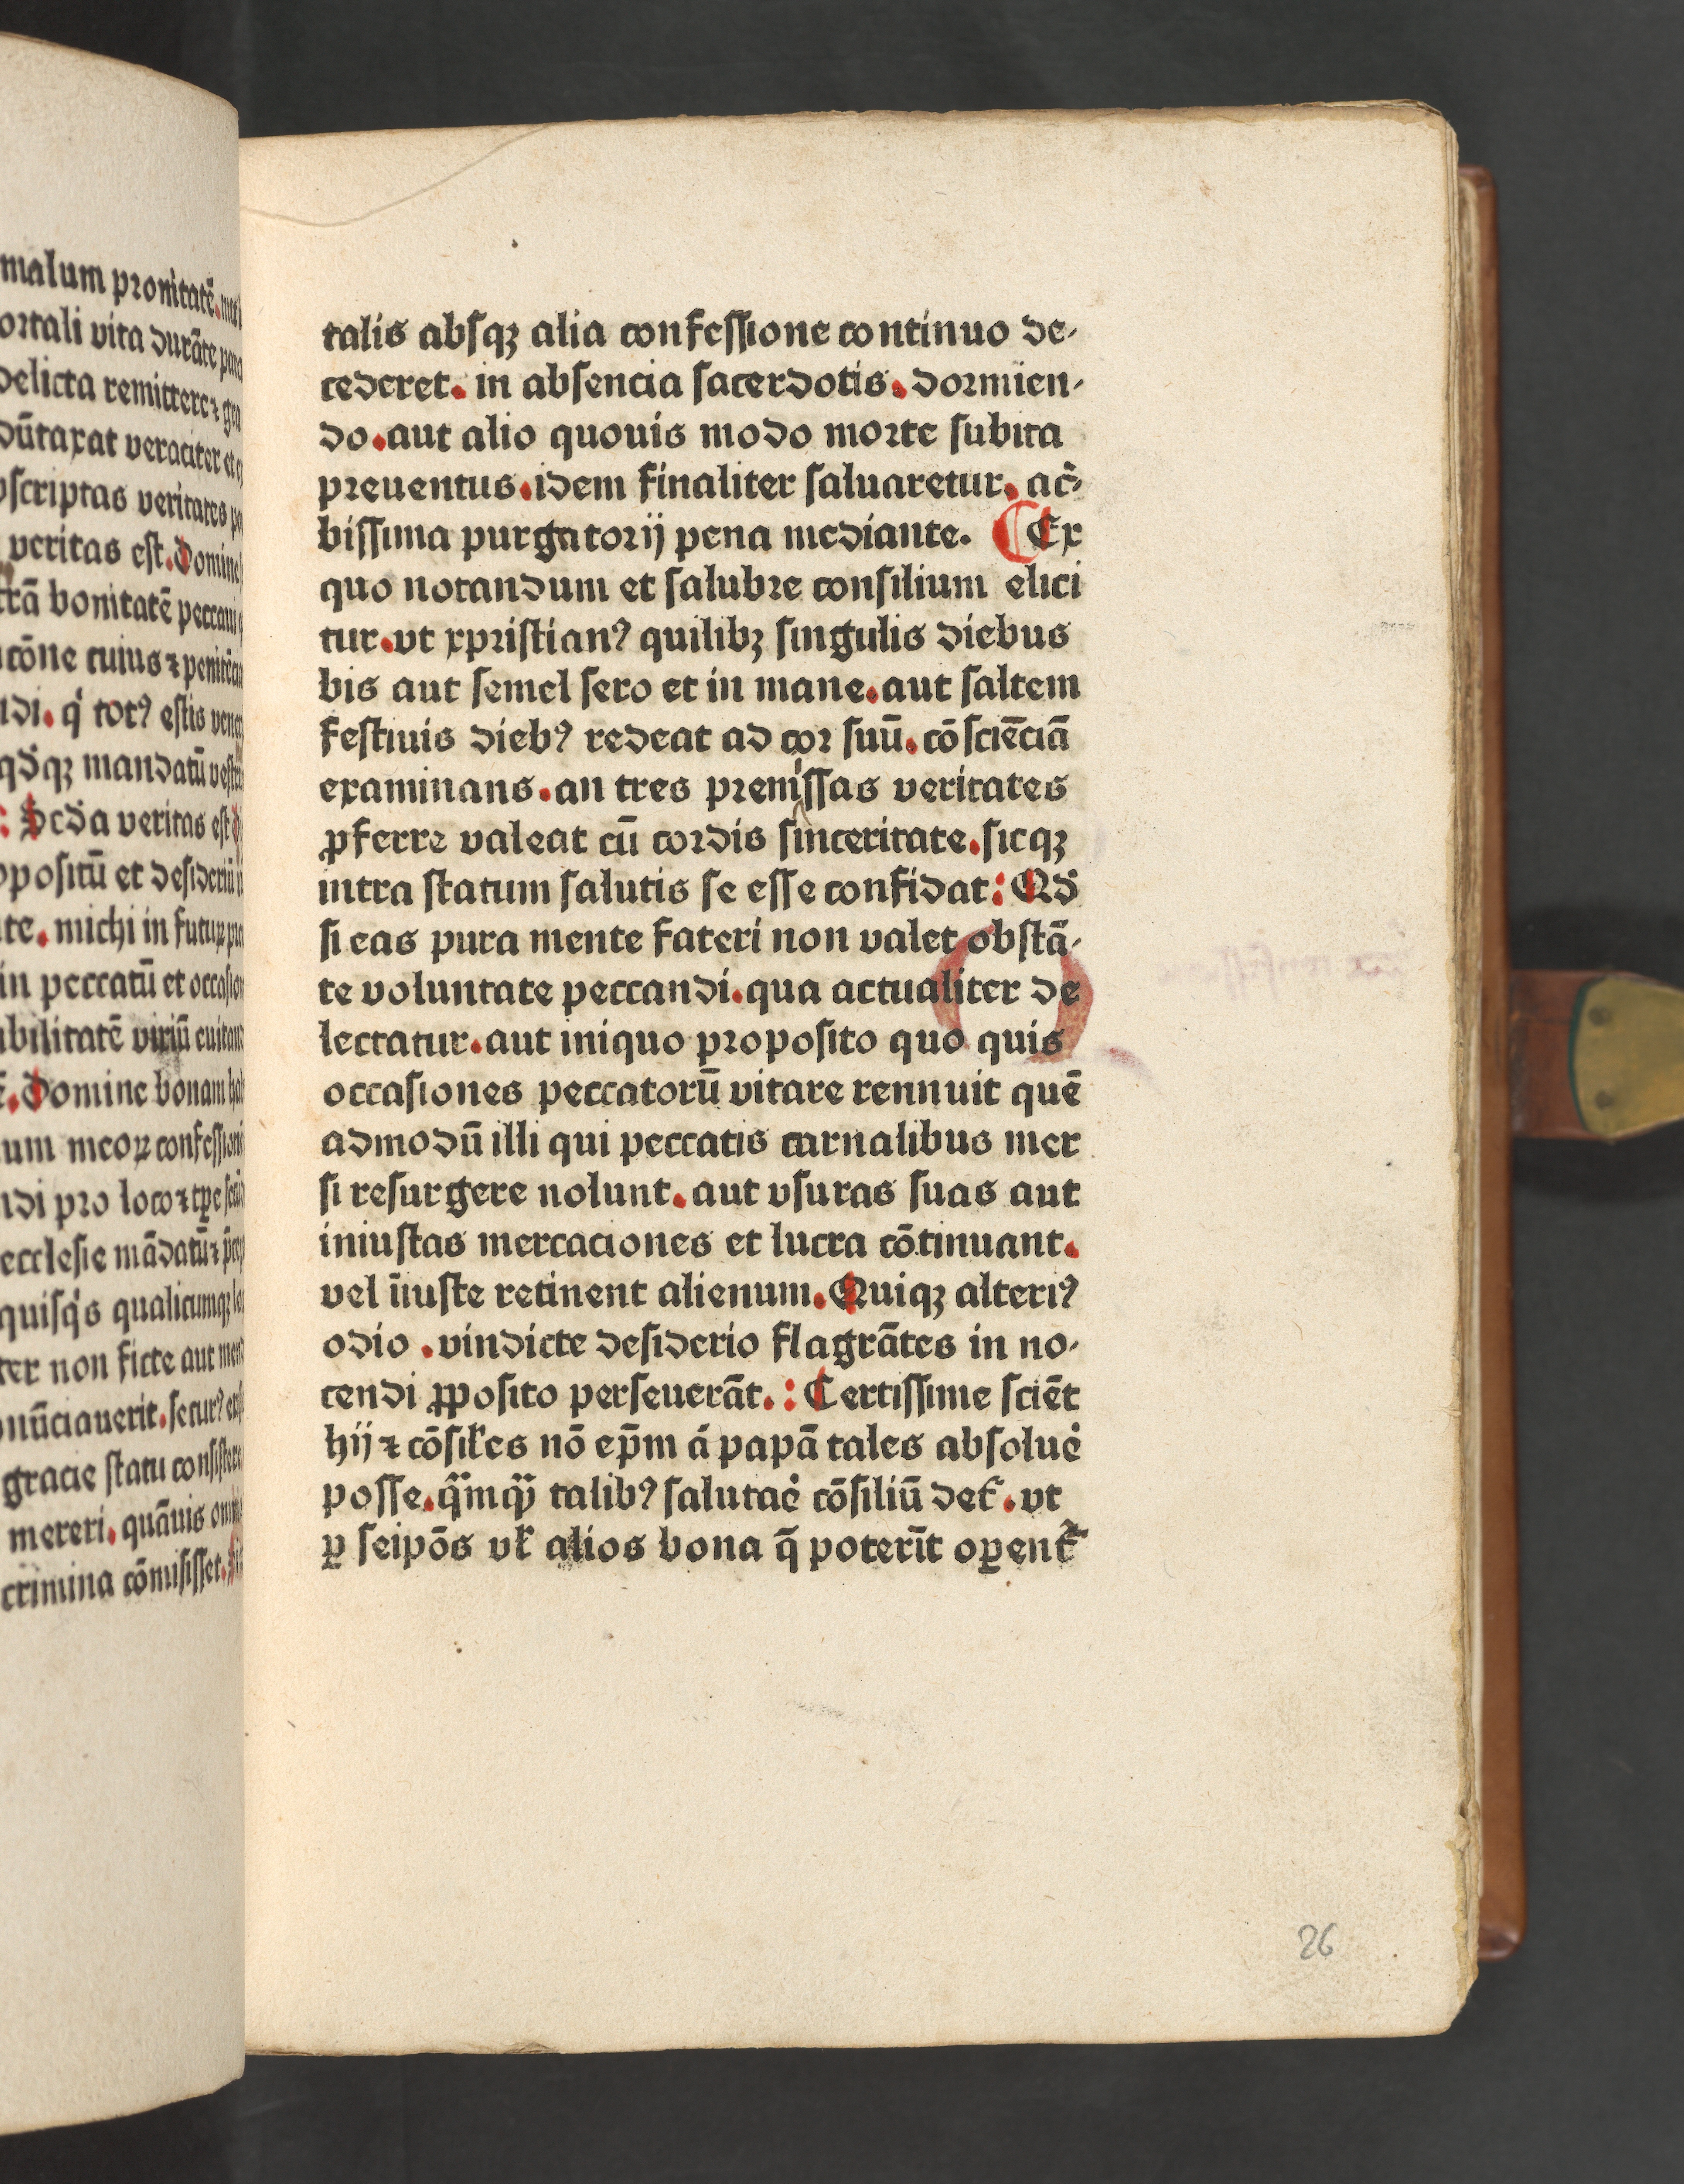 malum pronitatē.
ortali vita durāte
delicta remittere ⁊
dūtaxat veraciter et
scriptas veritates
veritas est. Domine
bonitatē peccaui
cōne cuius ⁊ penitēcia
di. q̇ totꝰ estis
qd̓qꝫ mandatū
: Scd̓a veritas est
positū et desideriū
te. michi in futuꝝ
in peccatū et
bilitatē viriū
Domine bonam
um meoꝝ confessioni
di pro loco ⁊ tꝑe
ecclesie mādatū ⁊
quisq̇s qualicumqꝫ
ter non ficte aut
nūciauerit. securꝰ
gracie statu consistere
mereri. quāuis
crimina cōmisisset.
talis absqꝫ alia confessione continuo de-
cederet. in absencia sacerdotis. dormien-
do. aut alio quouis modo morte subita
preuentus. idem finaliter saluaretur. ac̓-
bissima purgatorij pena mediante. Ex
quo notandum et salubre consilium elici
tur. vt xpristianꝰ quilibꝫ singulis diebus
bis aut semel sero et in mane. aut saltem
festiuis diebꝰ redeat ad cor suū. cōsciēciā
examinans. an tres premissas veritates
ꝓferre valeat cū cordis sinceritate. sicqꝫ
intra statum salutis se esse confidat: Qd̓
si eas pura mente fateri non valet obstā-
te voluntate peccandi. qua actualiter de
lectatur. aut iniquo proposito quo quis
occasiones peccatorū vitare rennuit quē
admodū illi qui peccatis carnalibus mer
si resurgere nolunt. aut vsuras suas aut
iniustas mercaciones et lucra cōtinuant.
vel īiuste retinent alienum. Quiqꝫ alteriꝰ
odio . vindicte desiderio flagrātes in no-
cendi ꝓposito perseuerāt. : Certissime sciēt
hij ⁊ cōsil̓es nō ep̄m á papā tales absolue̓
posse. qͣ̈mqͣ̈ talibꝰ salutae̓ cōsiliū det̓. vt
ꝑ seipōs vl̓ alios bona q̄ poterīt oꝑent̓
26